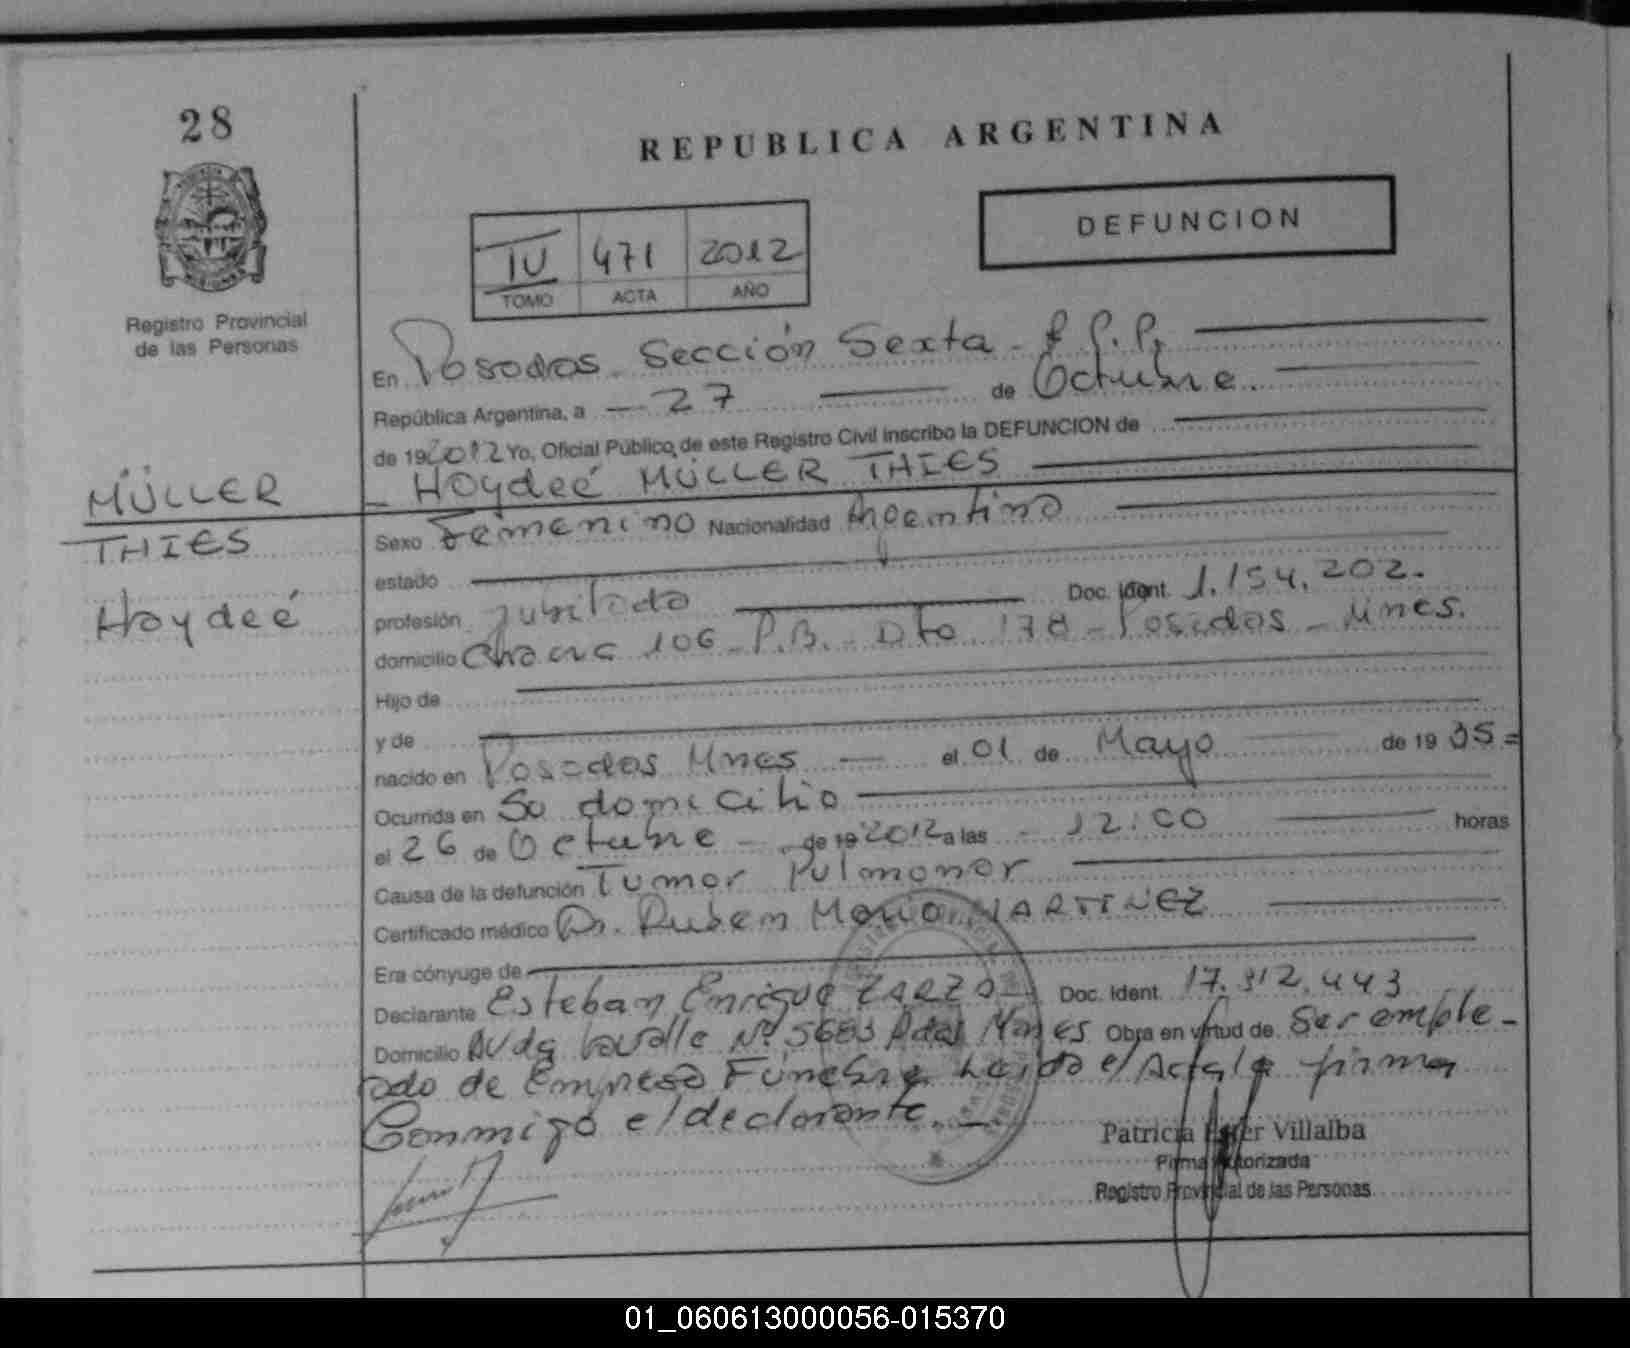 28
REPUBLICA ARGENTINA
DEFUNCION
IV 471 2012
TOMO ACTA AÑO
Registro Provincial
de las Personas
En Posadas. Sección Sexta - R.P.P.
República Argentina, a - 27 de Octubre.
de 192012 Yo, Oficial Público de este Registro Civil inscribo la DEFUNCION de
MÜLLER
THIES
Haydeé
- Haydeé MÜLLER THIES
Sexo Femenino Nacionalidad Argentina
estado
profesión jubilada Doc. Ident. 1.154.202.
domicilio 106 - P.B. - Dto 178 - Posadas - Mnes.
Hijo de
y de
nacido en Posadas Mnes el 01 de Mayo de 19 35 =
Ocurrida en Su domicilio
el 26 de Octubre - de 192012 a las - 12:00 horas
Causa de la defunción Tumor Pulmonar
Certificado médico Dr. Ruben Mario MARTINEZ
Era cónyuge de
Declarante Esteban Enrique ZARZA Doc. Ident. 17.312.443
Domicilio Avda Lavalle Nº 5683 Pdas Mnes Obra en virtud de Ser emple-
ado de Empresa Funebre Leida el Acta la firma
Conmigo el declarante. -
Patricia Ester Villalba
Firma Autorizada
Registro Provincial de las Personas
01_060613000056-015370